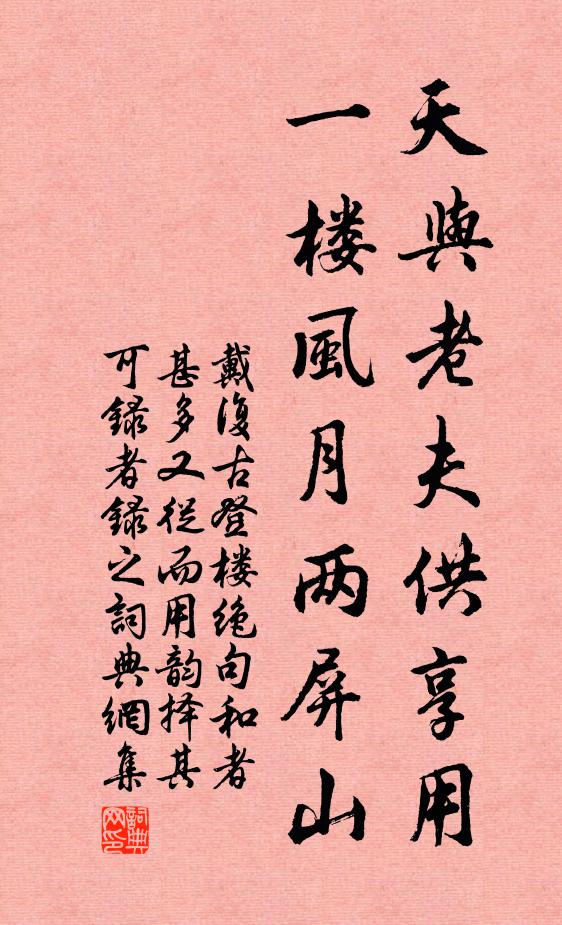 天與老夫供享用
一楼風月两屏山
戴復古登楼绝句和者
甚多又從而用韵择其
可録者録之詞典網集
詞典网印